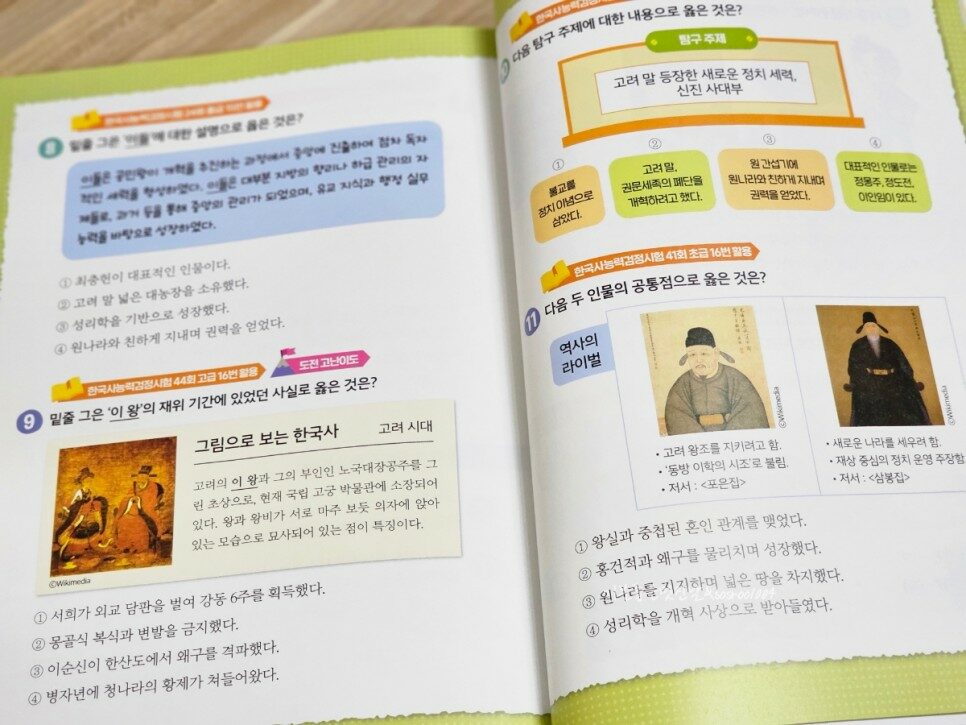 한국사능력검정시험 24회 초급 15번 활용
8 밑줄 그은 '이들'에 대한 설명으로 옳은 것은?
이들은 공민왕이 개혁을 추진하는 과정에서 중앙에 진출하여 점차 독자
적인 세력을 형성하였다. 이들은 대부분 지방의 향리나 하급 관리의 자
제들로, 과거 등을 통해 중앙의 관리가 되었으며, 유교 지식과 행정 실무
능력을 바탕으로 성장하였다.
① 최충헌이 대표적인 인물이다.
② 고려 말 넓은 대농장을 소유했다.
③ 성리학을 기반으로 성장했다.
④ 원나라와 친하게 지내며 권력을 얻었다.
한국사능력검정시험 44회 고급 16번 활용 도전 고난이도
9 밑줄 그은 '이 왕'의 재위 기간에 있었던 사실로 옳은 것은?
그림으로 보는 한국사 고려 시대
고려의 이 왕과 그의 부인인 노국대장공주를 그
린 초상으로, 현재 국립 고궁 박물관에 소장되어
있다. 왕과 왕비가 서로 마주 보듯 의자에 앉아
있는 모습으로 묘사되어 있는 점이 특징이다.
©Wikimedia
① 서희가 외교 담판을 벌여 강동 6주를 획득했다.
② 몽골식 복식과 변발을 금지했다.
③ 이순신이 한산도에서 왜구를 격파했다.
④ 병자년에 청나라의 황제가 쳐들어왔다.
한국사능력검정시험
다음 탐구 주제에 대한 내용으로 옳은 것은?
탐구 주제
고려 말 등장한 새로운 정치 세력,
신진 사대부
①
불교를
정치 이념으로
삼았다.
②
고려 말,
권문세족의 폐단을
개혁하려고 했다.
③
원 간섭기에
원나라와 친하게 지내며
권력을 얻었다.
④
대표적인 인물로는
정몽주, 정도전,
이인임이 있다.
한국사능력검정시험 41회 초급 16번 활용
11 다음 두 인물의 공통점으로 옳은 것은?
역사의
라이벌
©Wikimedia
• 고려 왕조를 지키려고 함.
• '동방 이학의 시조'로 불림.
• 저서 : <포은집>
©Wikimedia
• 새로운 나라를 세우려 함.
• 재상 중심의 정치 운영 주장함
• 저서 : <삼봉집>
① 왕실과 중첩된 혼인 관계를 맺었다.
② 홍건적과 왜구를 물리치며 성장했다.
③ 원나라를 지지하며 넓은 땅을 차지했다.
④ 성리학을 개혁 사상으로 받아들였다.